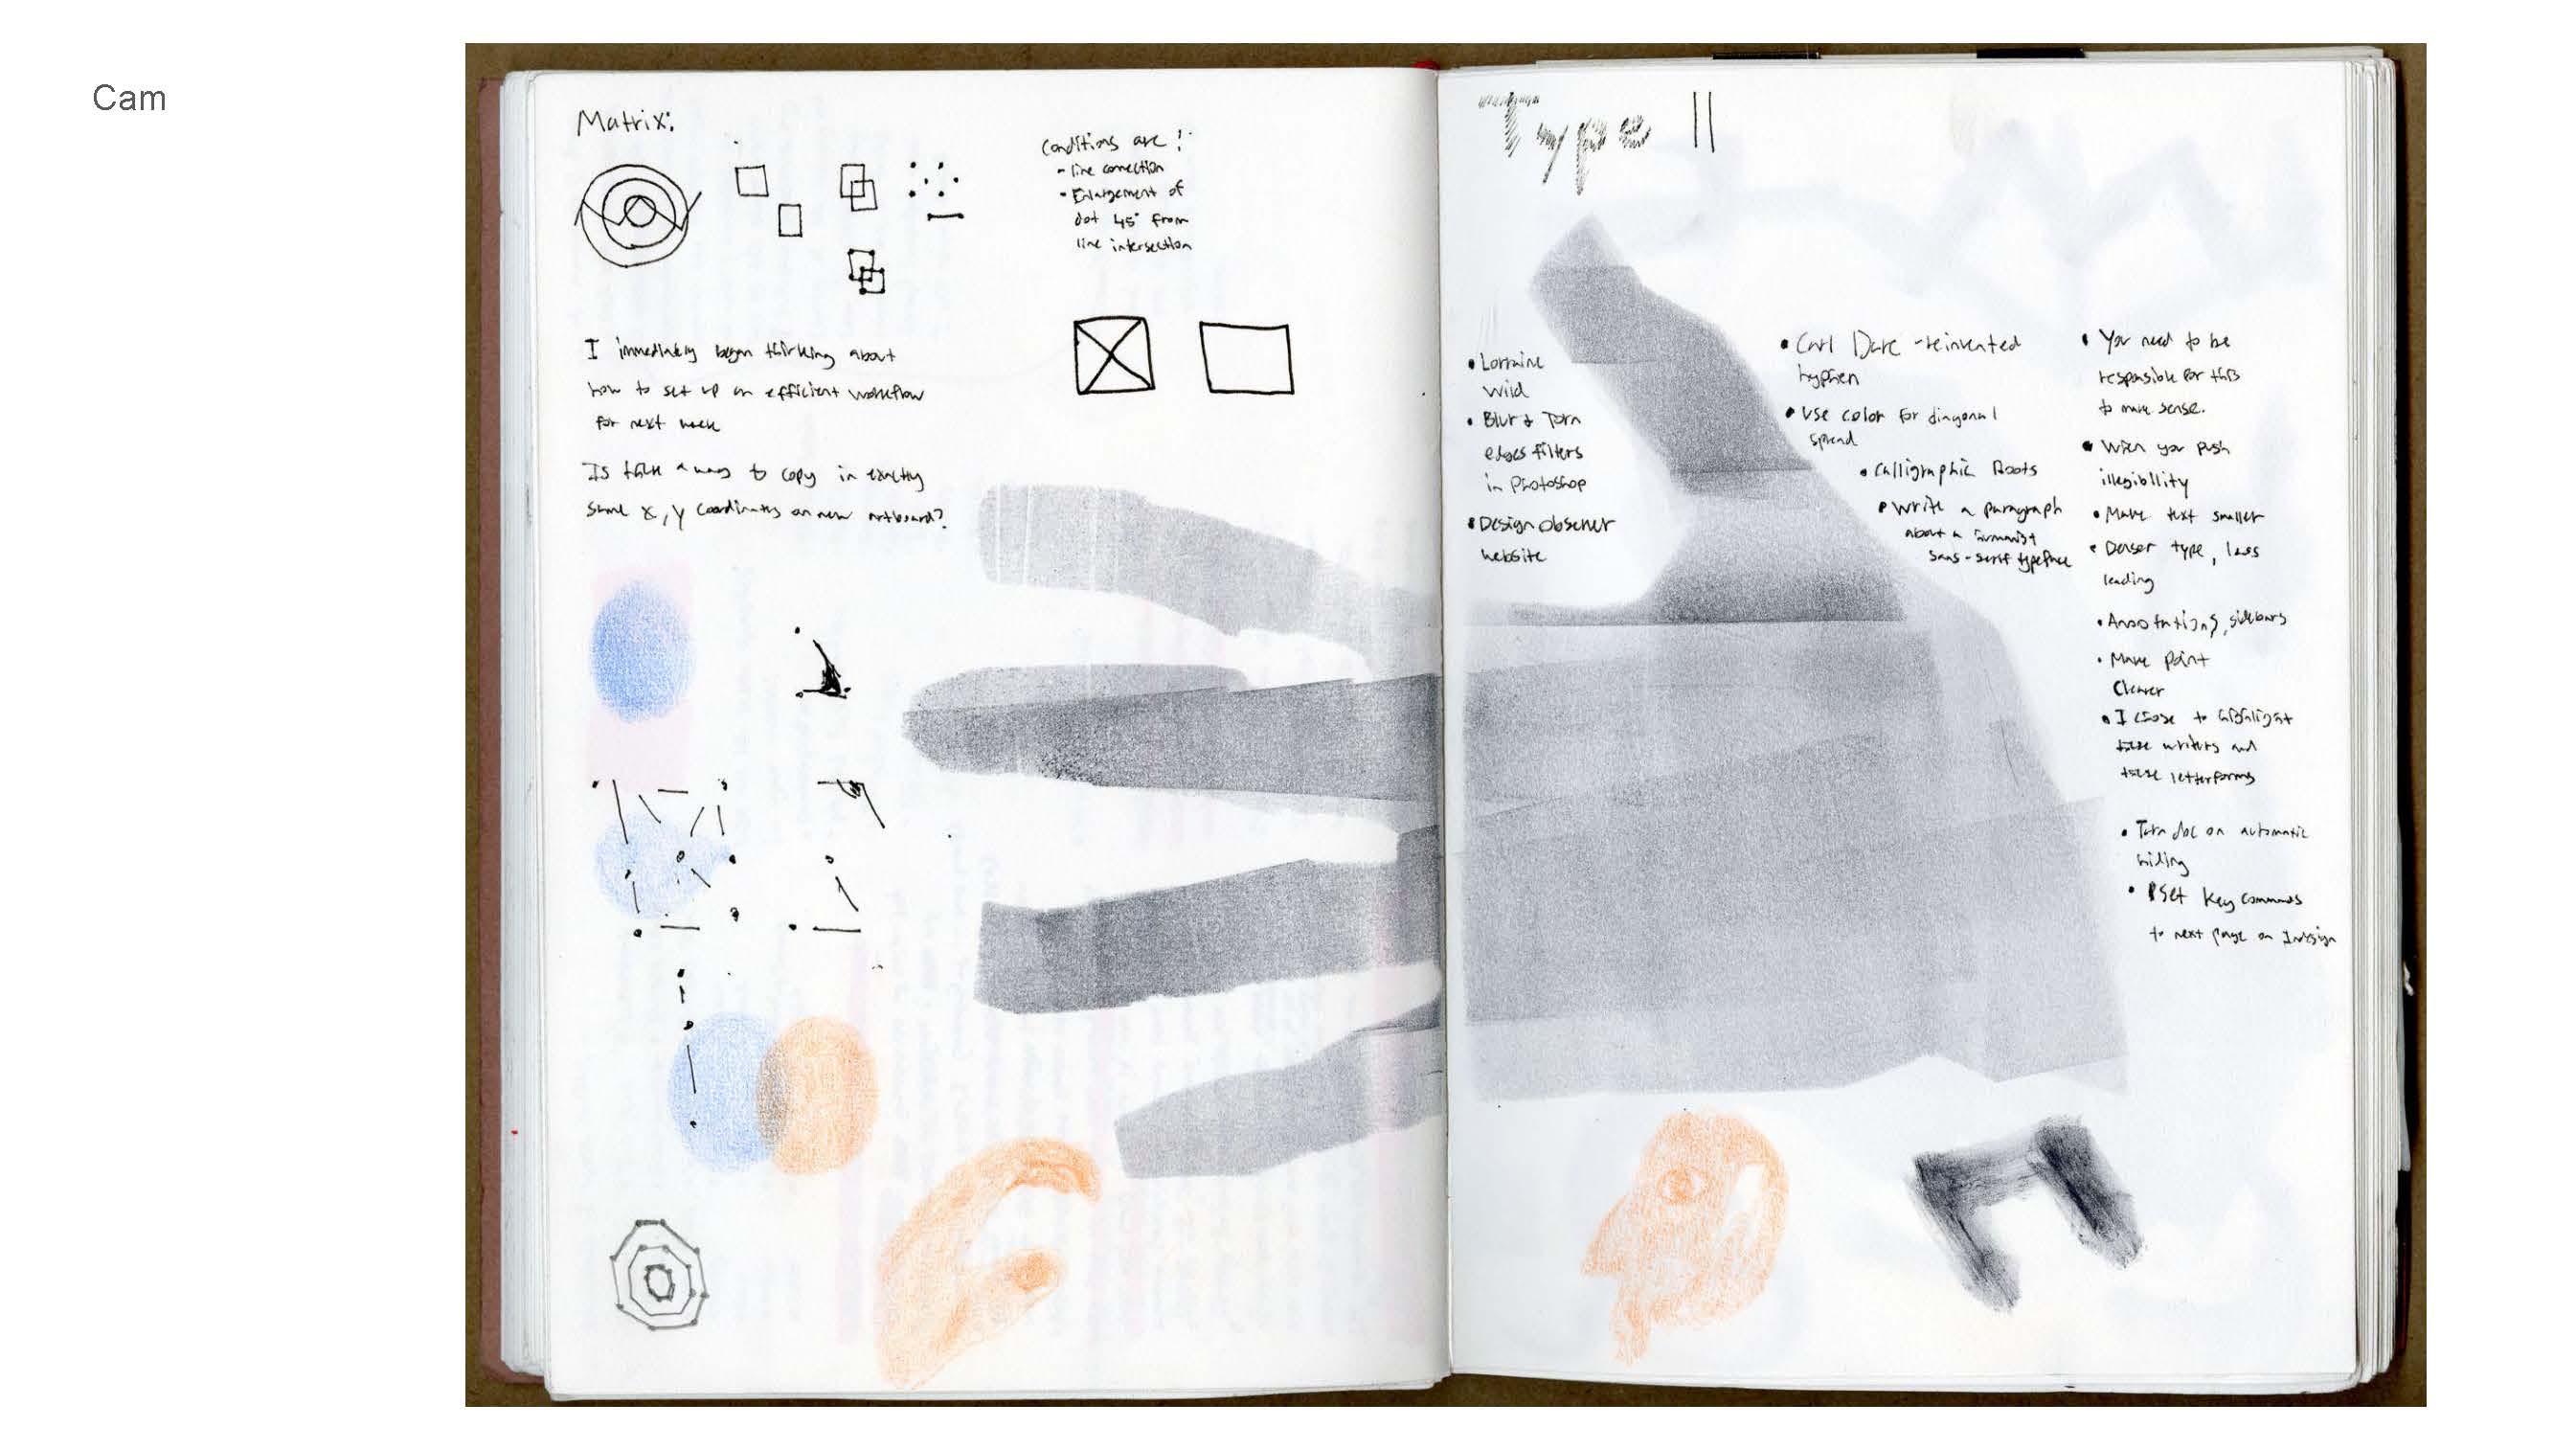 Cam
Matrix:
Conditions are:
- line connection
- Enlargement of
dot 45° from
line intersection
I immediately began thinking about
how to set up an efficient workflow
for next week
Is there a way to copy in exactly
same x, y coordinates on new artboard?
Type II
• Lorraine
Wild
• Blur & Torn
edges filters
in Photoshop
• Design observer
website
• Carl - reinvented
hyphen
• Use color for diagonal
spread
• Calligraphic Roots
• Write a paragraph
about a humanist
sans-serif typeface
• You need to be
responsible for this
to make sense.
• When you push
illegibility
• Make text smaller
• Denser type, less
leading
• Annotations, sidebars
• Make point
Clearer
• I chose to highlight
these writers and
these letterforms
• Turn doc on automatic
hiding
• Set key commands
to next page on